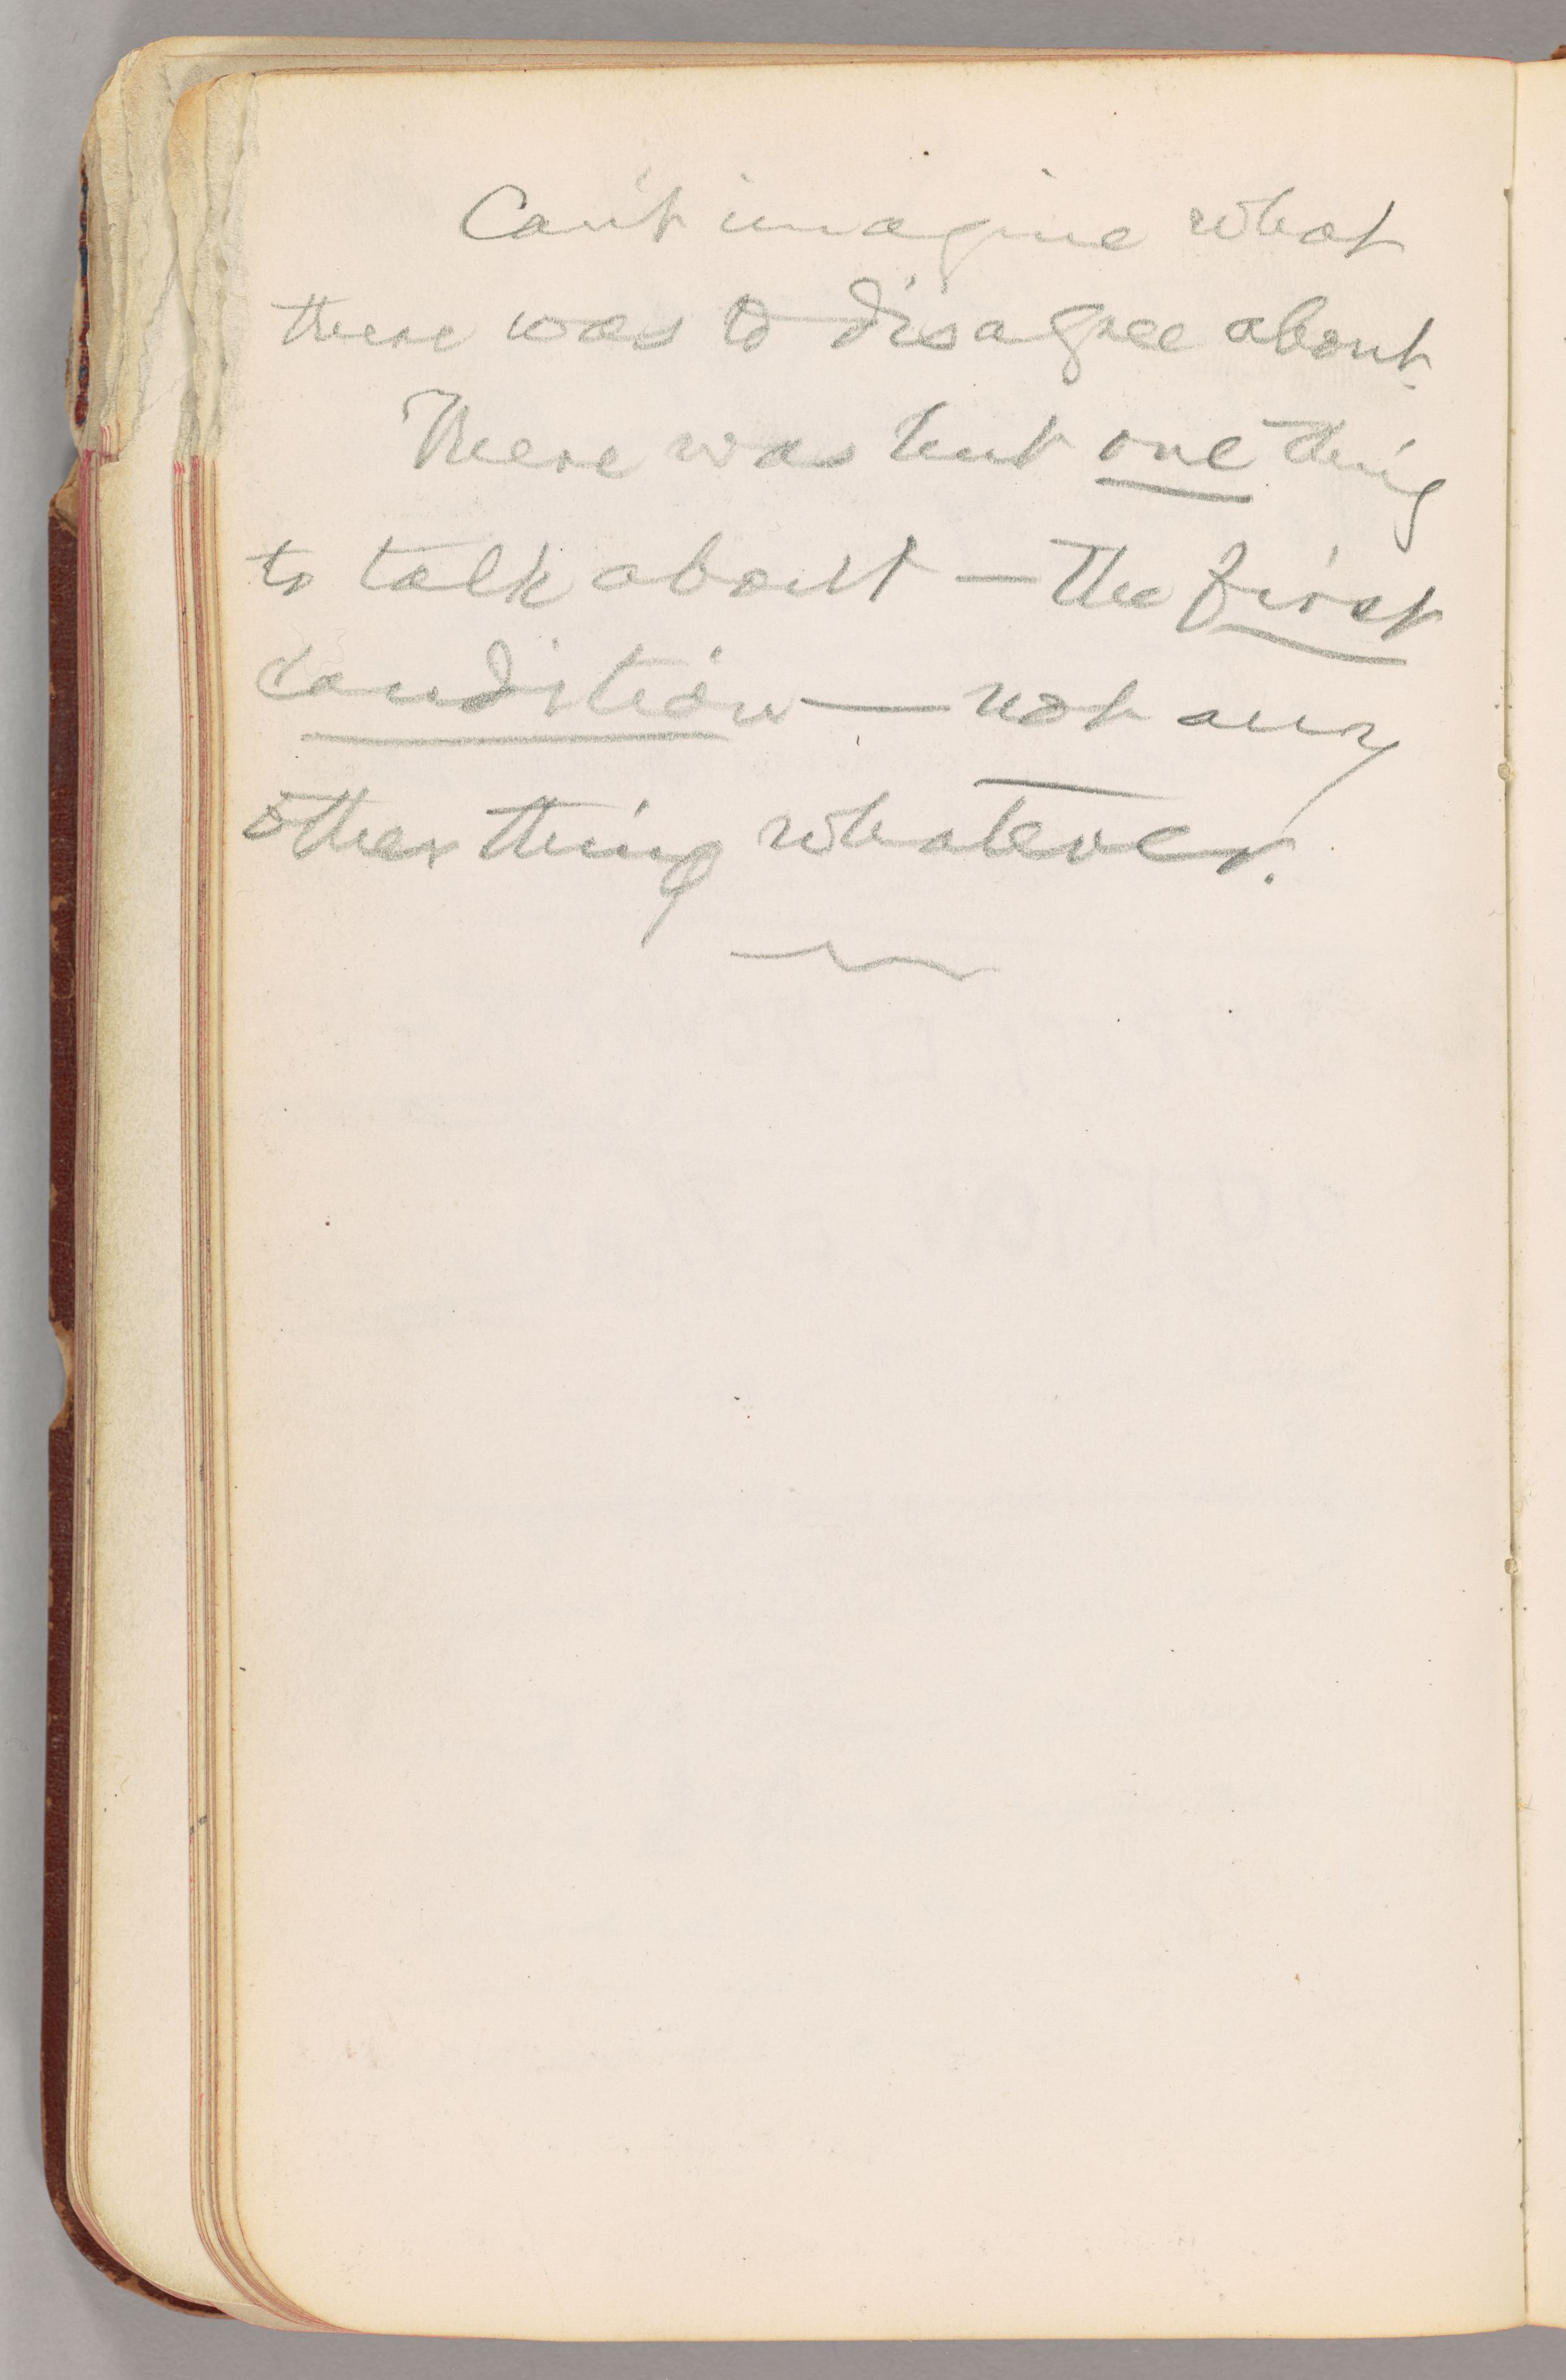 Can't imagine what
there was to disagree about.
There was but one thing
to talk about — the first
condition — not any
other thing whatever.